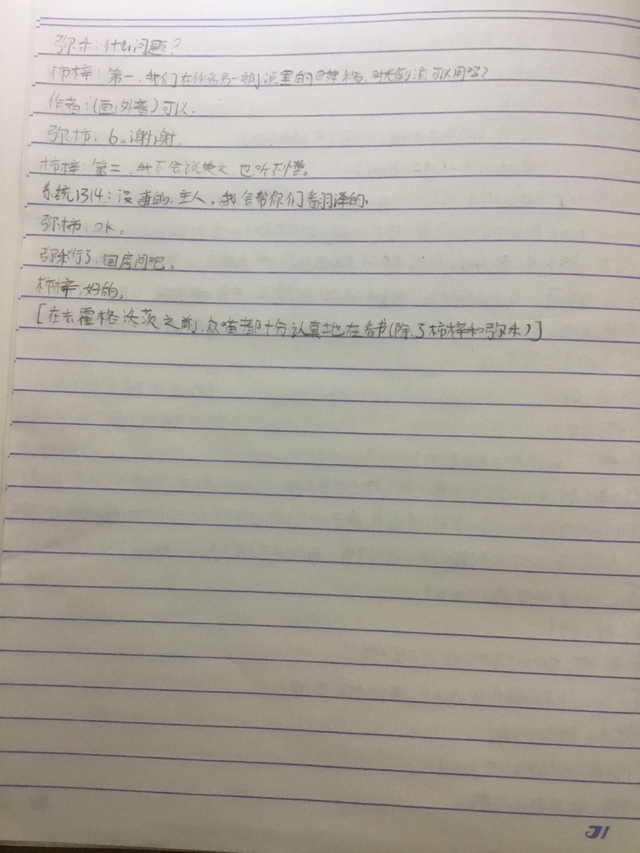 弥禾:什么问题?
柿梓:第一,我们在作者另一部小说里的
可以用吗?
作者:(画外音)可以.
弥柿:6。谢谢.
柿梓:第二,我不会说英文,也听不懂。
系统1314:没事的,主人。我会帮你们翻译的.
弥柿:OK。
弥禾:行了,回房间吧。
柿梓:好的,
[在去霍格沃茨之前,众 都十分认真地在看书(除了柿梓和弥禾)]
31